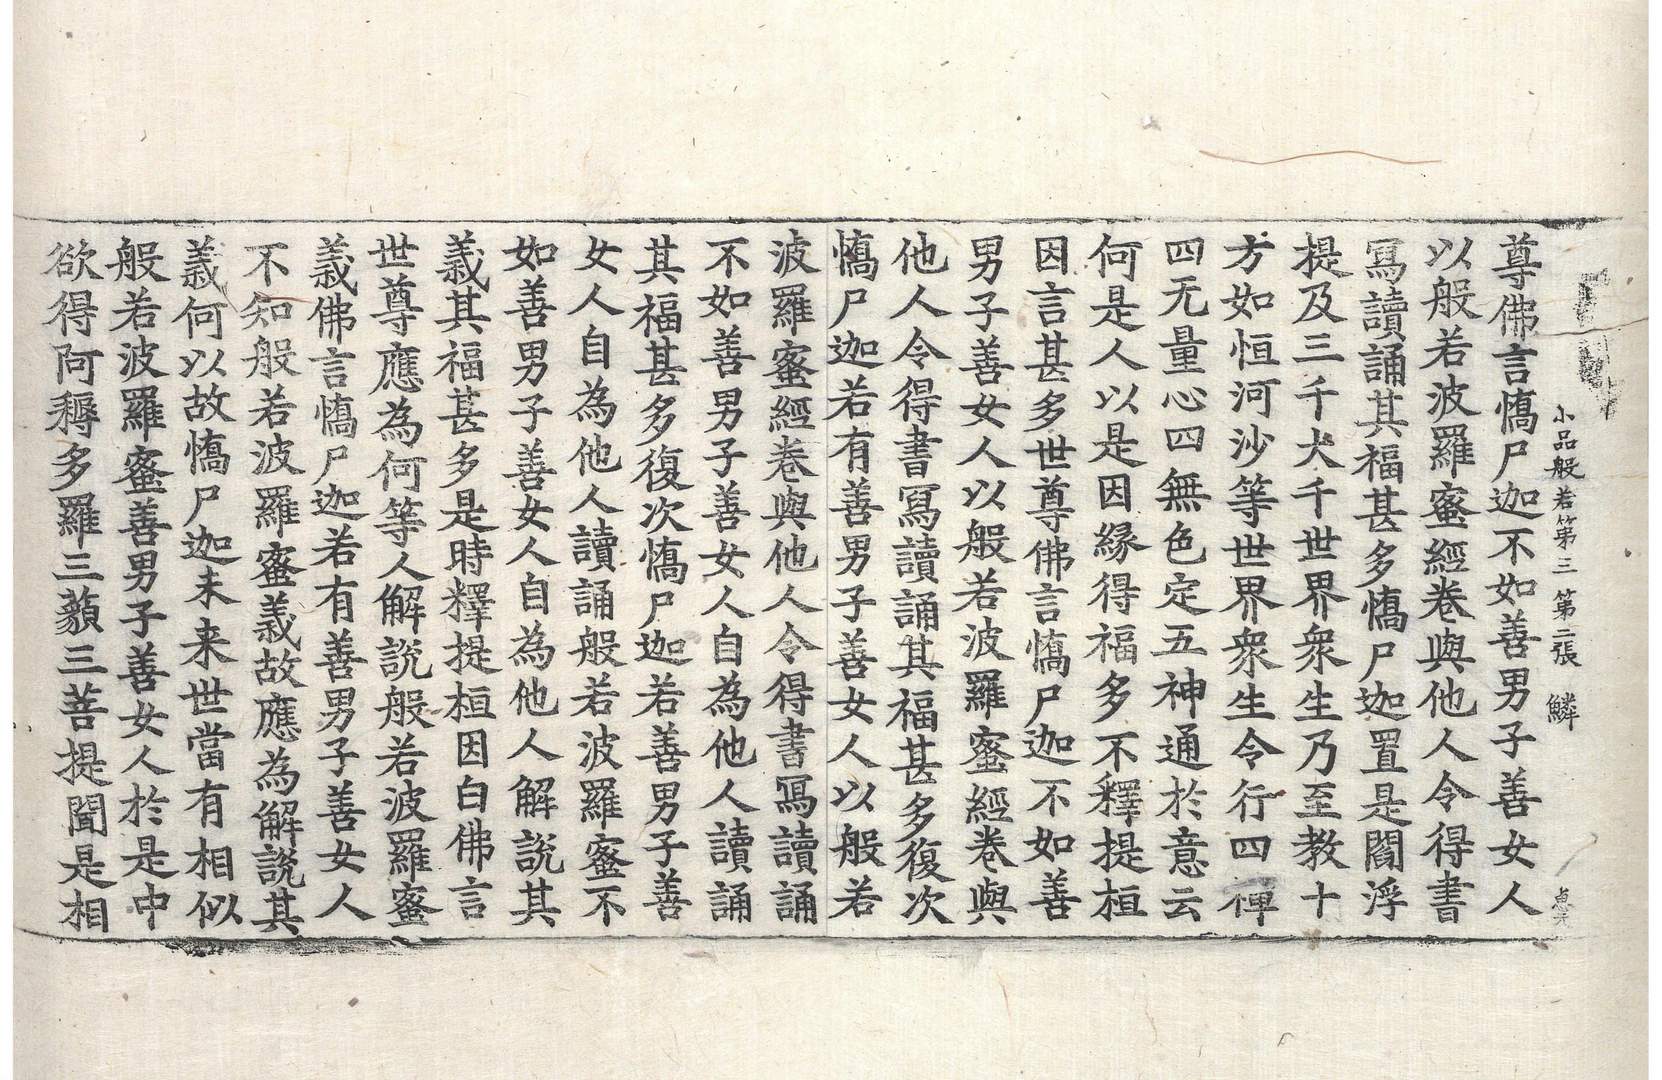 小品般若第三 第二張 鱗
尊佛言憍尸迦不如善男子善女人
以般若波羅蜜經卷與他人令得書
寫讀誦其福甚多憍尸迦置是閻浮
提及三千大千世界衆生乃至教十
方如恒河沙等世界衆生令行四禪
四无量心四無色定五神通於意云
何是人以是因緣得福多不釋提桓
因言甚多世尊佛言憍尸迦不如善
男子善女人以般若波羅蜜經卷與
他人令得書寫讀誦其福甚多復次
憍尸迦若有善男子善女人以般若
波羅蜜經卷與他人令得書寫讀誦
不如善男子善女人自為他人讀誦
其福甚多復次憍尸迦若善男子善
女人自為他人讀誦般若波羅蜜不
如善男子善女人自為他人解說其
義其福甚多是時釋提桓因白佛言
世尊應為何等人解說般若波羅蜜
義佛言憍尸迦若有善男子善女人
不知般若波羅蜜義故應為解說其
義何以故憍尸迦未来世當有相似
般若波羅蜜善男子善女人於是中
欲得阿耨多羅三藐三菩提聞是相